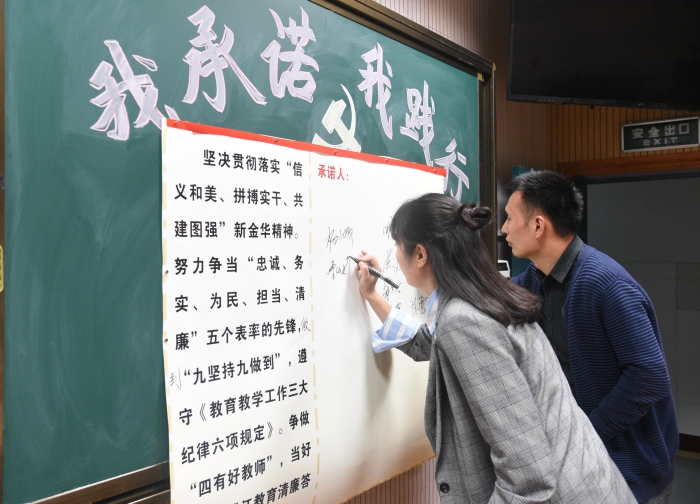 我承诺 我践行
安全出口
EXIT
坚决贯彻落实“信
义和美、拼搏实干、共
建图强”新金华精神。
努力争当“忠诚、务
实、为民、担当、清
廉”五个表率的先锋,做
到“九坚持九做到”,遵
守《教育教学工作三大
纪律六项规定》。争做
“四有好教师”,当好
江教育清廉答
承诺人: